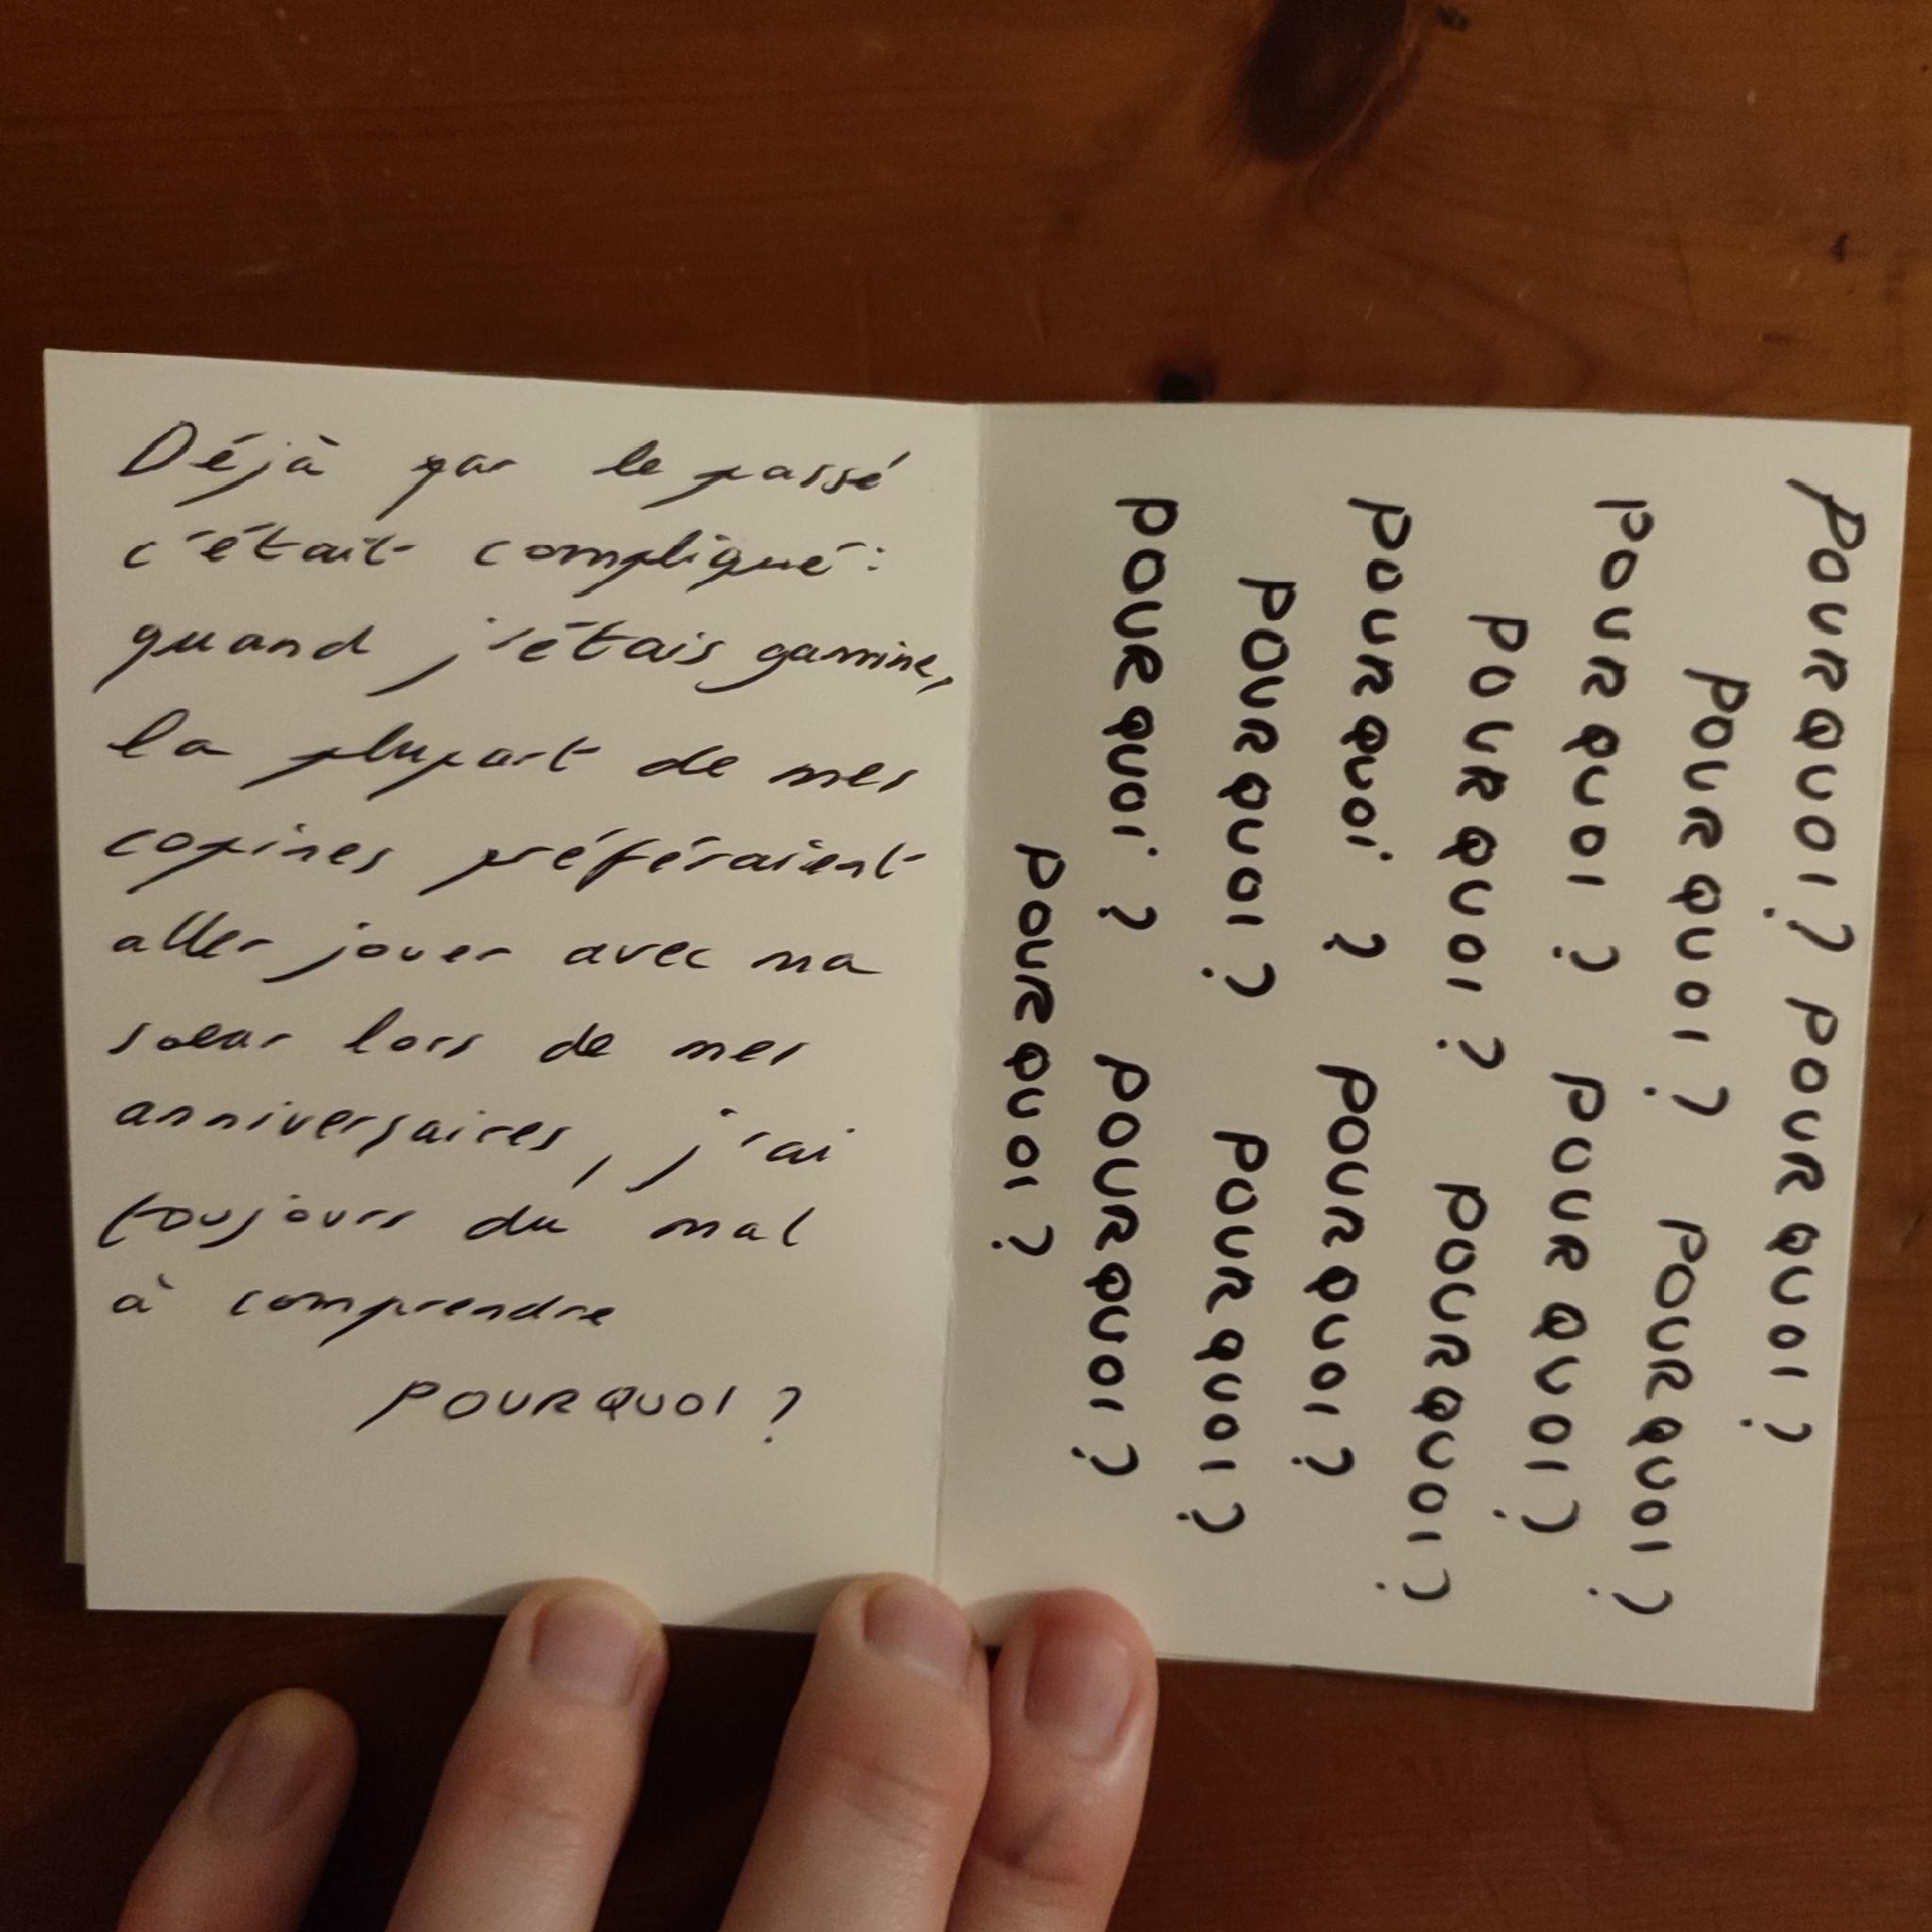 Déjà par le passé
c'était compliqué :
quand j'étais gamine,
la plupart de mes
copines préféraient
aller jouer avec ma
soeur lors de mes
anniversaires, j'ai
toujours du mal
à comprendre
POURQUOI ?
POURQUOI ? POURQUOI ?
POURQUOI ? POURQUOI ?
POURQUOI ? POURQUOI ?
POURQUOI ? POURQUOI ?
POURQUOI ? POURQUOI ?
POURQUOI ? POURQUOI ?
POURQUOI ? POURQUOI ?
POURQUOI ?